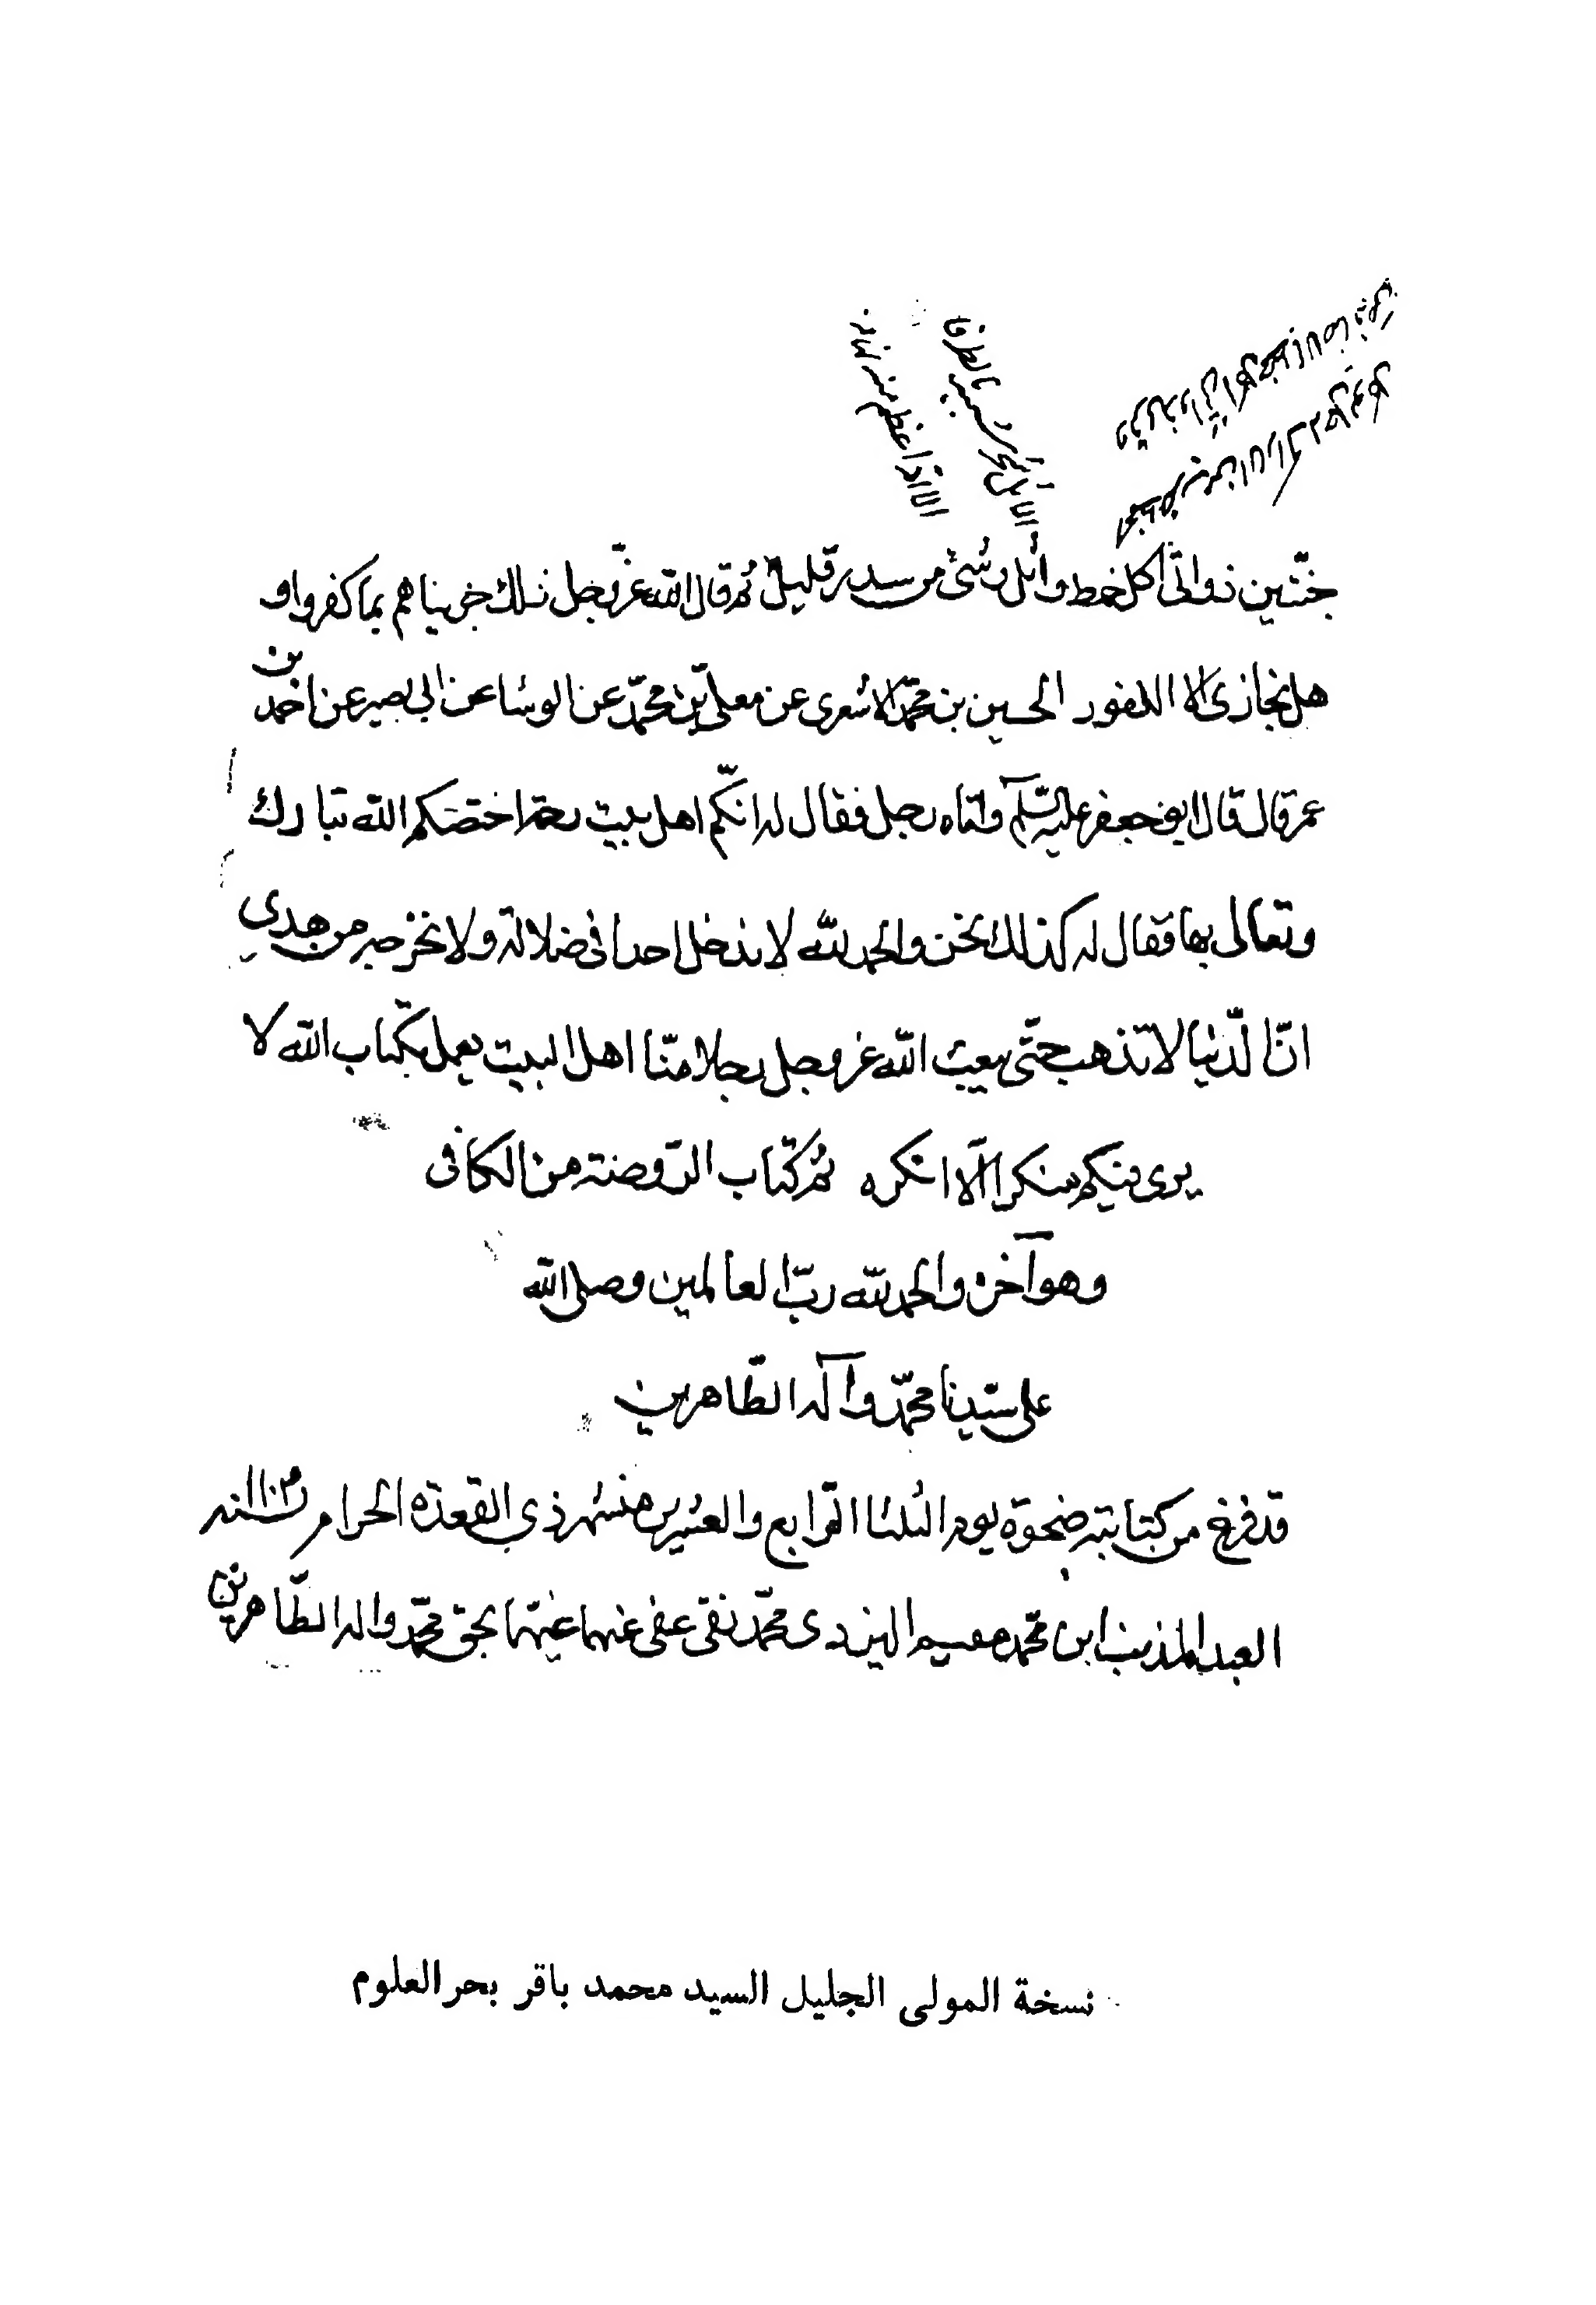 الاثل شجر شبيه بالطرفا
الا انه اعظم منه
جنّتين ذواتى اكل خمط واثل وشئ من سدر قليل ثم قال الله عزّ وجل ذلك جزيناهم بما كفروا و
هل نجازى الا الكفور الحسين بن محمّد الاشعرى عن معلى بن محمّد عن الوشا عن ابى بصير عن احمد بن
عمر قال قال ابو جعفر عليه السّلم واتاه رجل فقال له انّكم اهل بيت رحمة اختصكم الله تبارك
وتعالى بها فقال له كذلك نحن والحمد لله لا ندخل احدا فى ضلالة ولا نخرجه من هدي
انّ الدّنيا لا تذهب حتّى يبعث الله عز وجل رجلا منّا اهل البيت يعمل بكتاب الله لا
يرى فيكم منكرا الّا انكره تم كتاب الرّوضة من الكافى
وهو آخره والحمد لله ربّ العالمين وصلى الله
على سيّدنا محمّد وآله الطّاهرين
قد فرغ من كتابته ضحوة يوم الثلثا الرّابع والعشرين من شهر ذي القعدة الحرام سنه
العبد المذنب ابن محمّد مقيم اليزدى محمّد تقى عفى عنهما بحق محمّد واله الطّاهرين
نسخة المولى الجليل السيد محمد باقر بحر العلوم